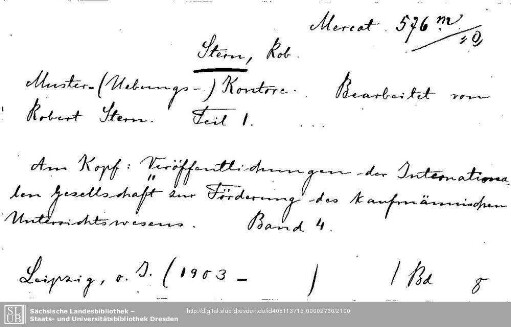 Mercat. 576 m
/10
Stern, Rob.
Muster-(Uebungs-) Kontore. Bearbeitet von
Robert Stern. Teil 1.
Am Kopf: Veröffentlichungen der Internationa-
len Gesellschaft zur Förderung des kaufmännischen
Unterrichtswesens. Band 4.
Leipzig, o. J. (1903 - ) 1 Bd 8
SÄCHSISCHE LANDESBIBLIOTHEK –
STAATS- UND UNIVERSITÄTSBIBLIOTHEK DRESDEN